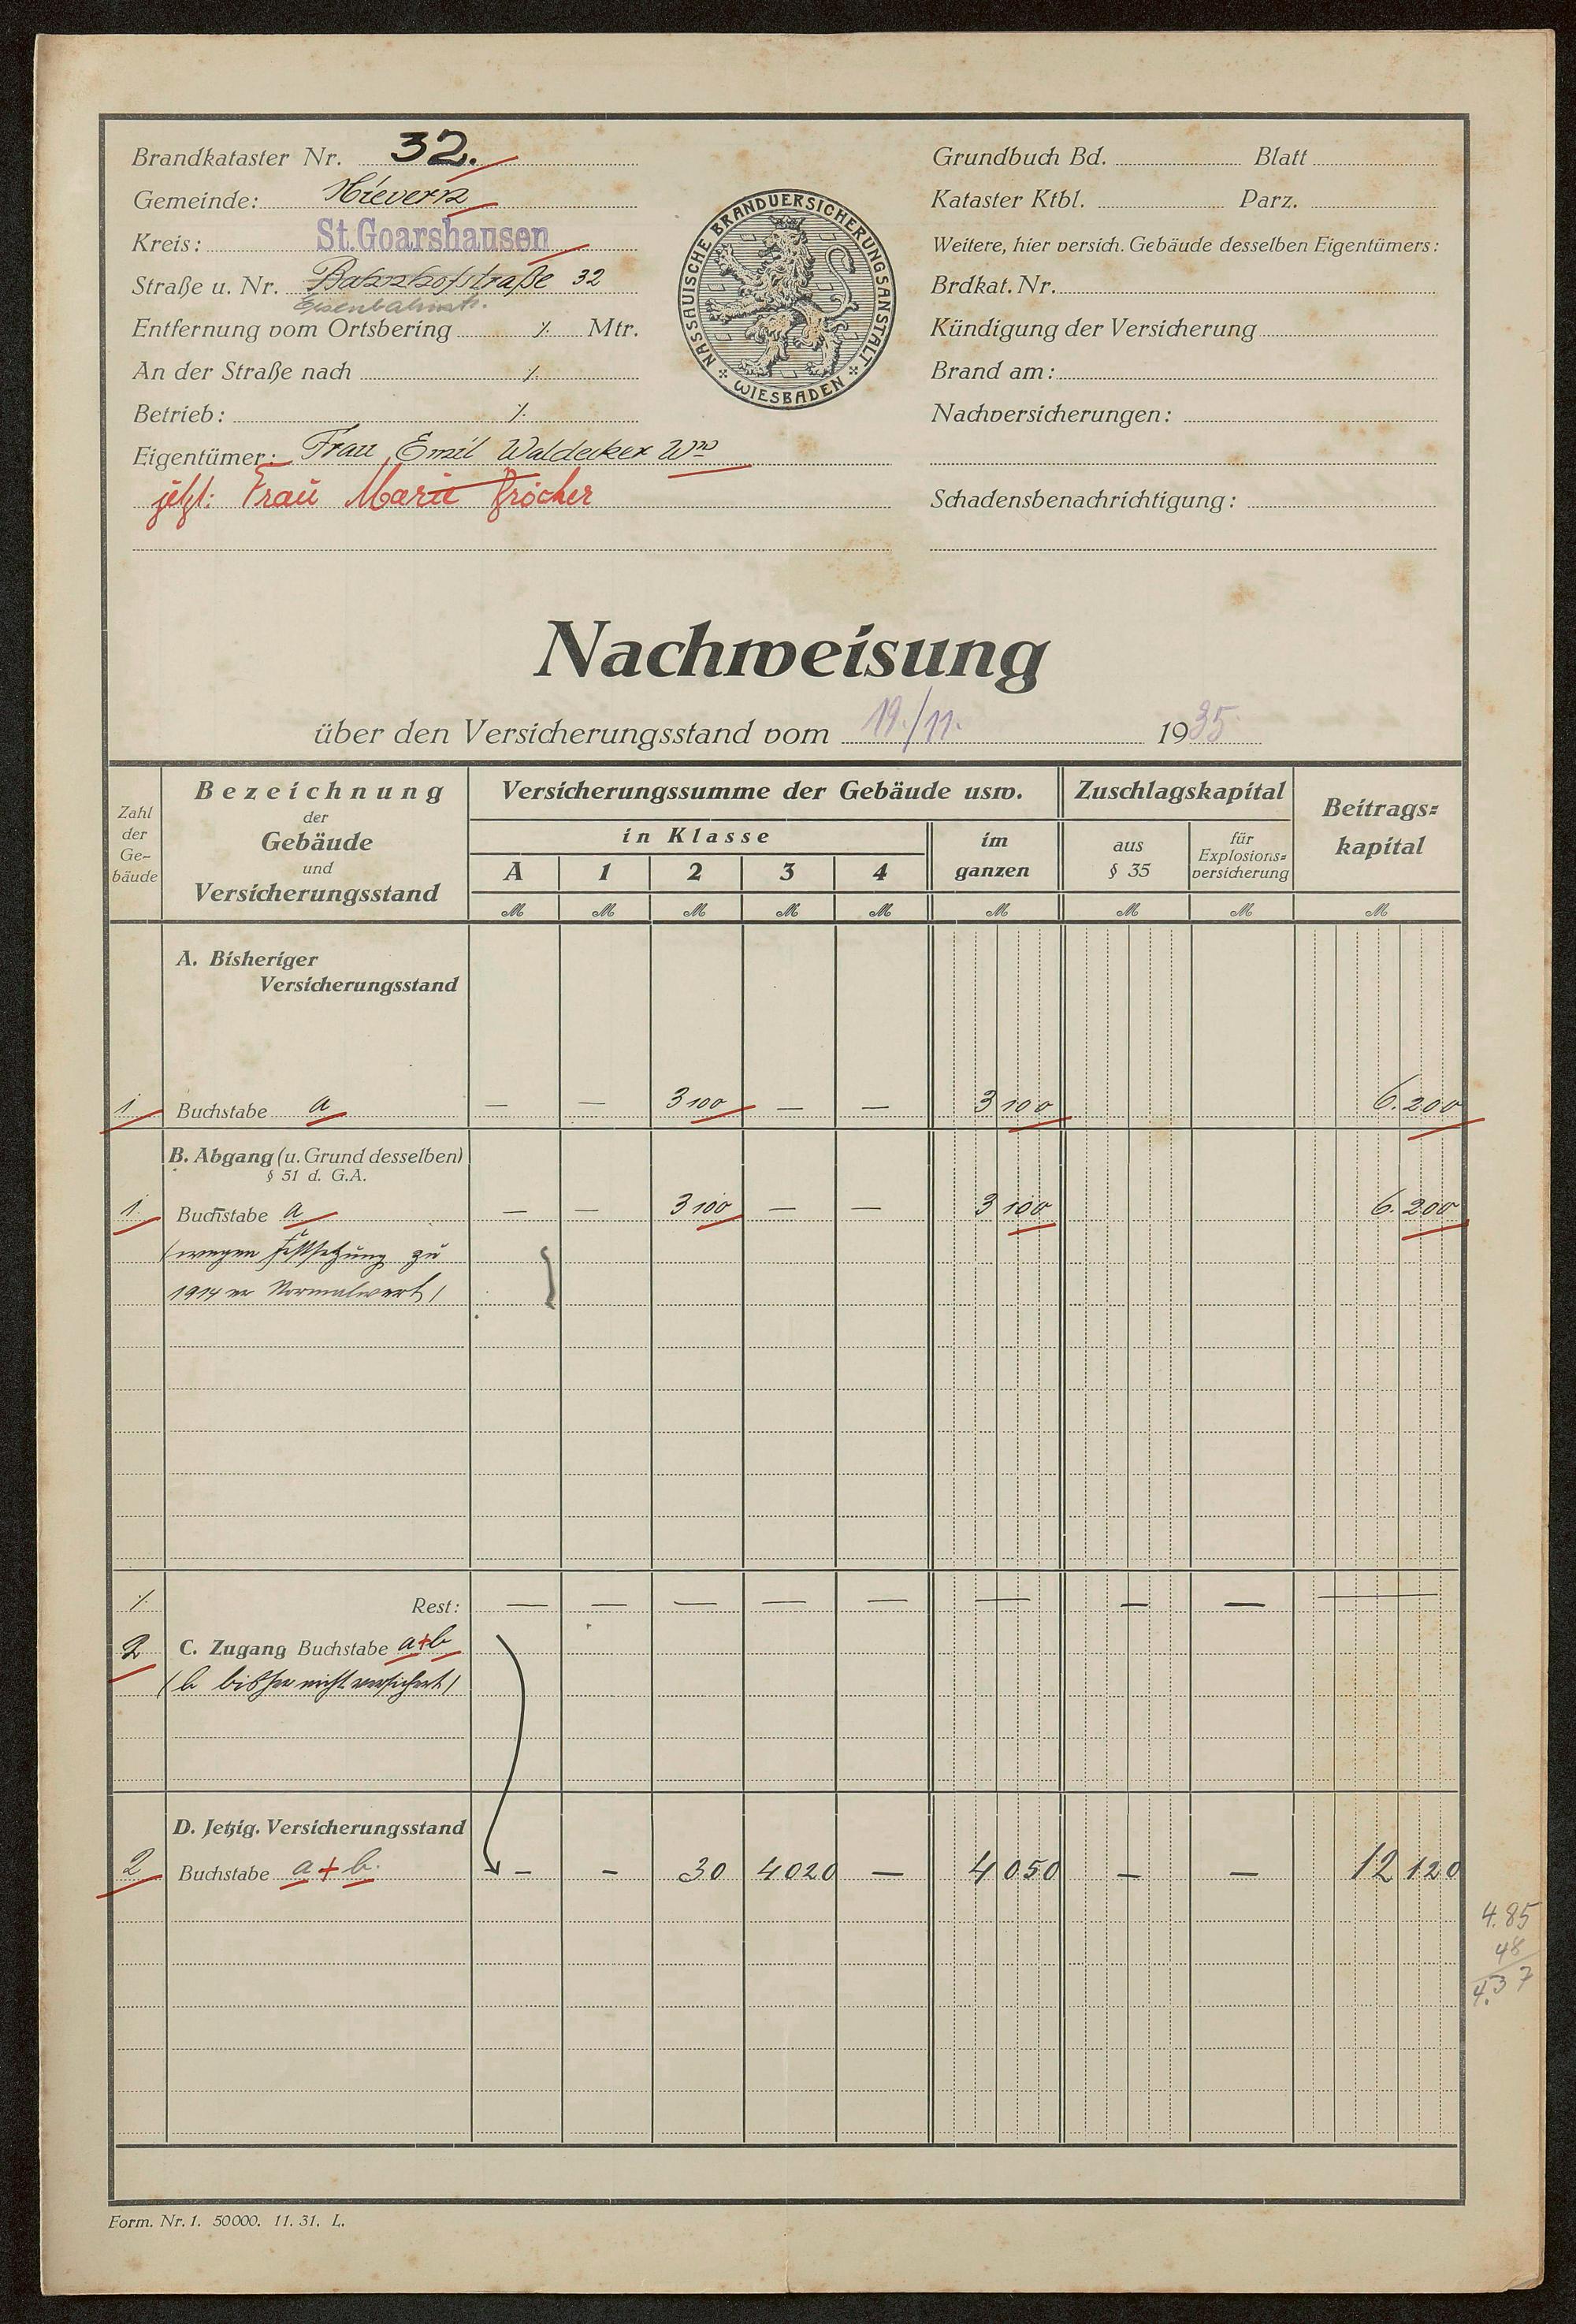 Brandkataster Nr. 32.
Gemeinde: Nievern
Kreis: St. Goarshausen
Straße u. Nr. Bahnhofstraße 32
Eisenbahnstr.
Entfernung vom Ortsbering ./. Mtr.
An der Straße nach ./.
Betrieb: ./.
Eigentümer: Frau Emil Waldecker Wwe
jetzt: Frau Marie
NASSAUISCHE BRANDVERSICHERUNGSANSTALT
WIESBADEN
Grundbuch Bd. Blatt
Kataster Ktbl. Parz.
Weitere, hier versich. Gebäude desselben Eigentümers:
Brdkat. Nr.
Kündigung der Versicherung
Brand am:
Nachversicherungen:
Schadensbenachrichtigung:
Nachweisung
über den Versicherungsstand vom 19./11. 1935
Zahl der Ge-bäude
Bezeichnung
der
Gebäude
und
Versicherungsstand
Versicherungssumme der Gebäude usw.
in Klasse
A 1 2 3 4
im ganzen
Zuschlagskapital
aus § 35
für Explosions=versicherung
Beitrags=kapital
M M M M M M M M M
A. Bisheriger
Versicherungsstand
1 Buchstabe a — — 3100 — — 3 100 6.200
B. Abgang (u. Grund desselben)
§ 51 d. G.A.
1. Buchstabe a — — 3100 — — 3 100 6.200
(wegen Festsetzung zu
1914 er Normalwert)
./. Rest: — — — — — — — — —
2 C. Zugang Buchstabe a+b
(b bisher nicht versichert)
D. Jetzig. Versicherungsstand
2 Buchstabe a+b. – – 30 4020 — 4 050 — — 12 120
4.85
48
4.37
Form. Nr. 1. 50000. 11. 31. L.